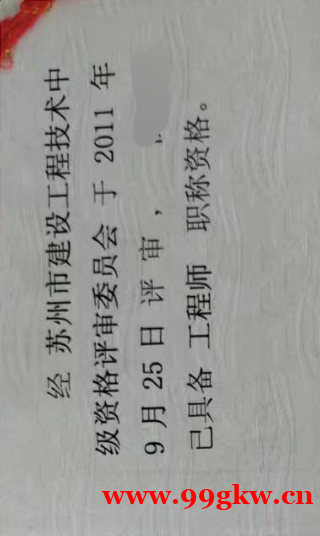 经 苏州市建设工程技术中
级资格评审委员会 于 2011 年
9 月 25 日 评 审 ，
已具备 工程师 职称资格。
www.99gkw.cn